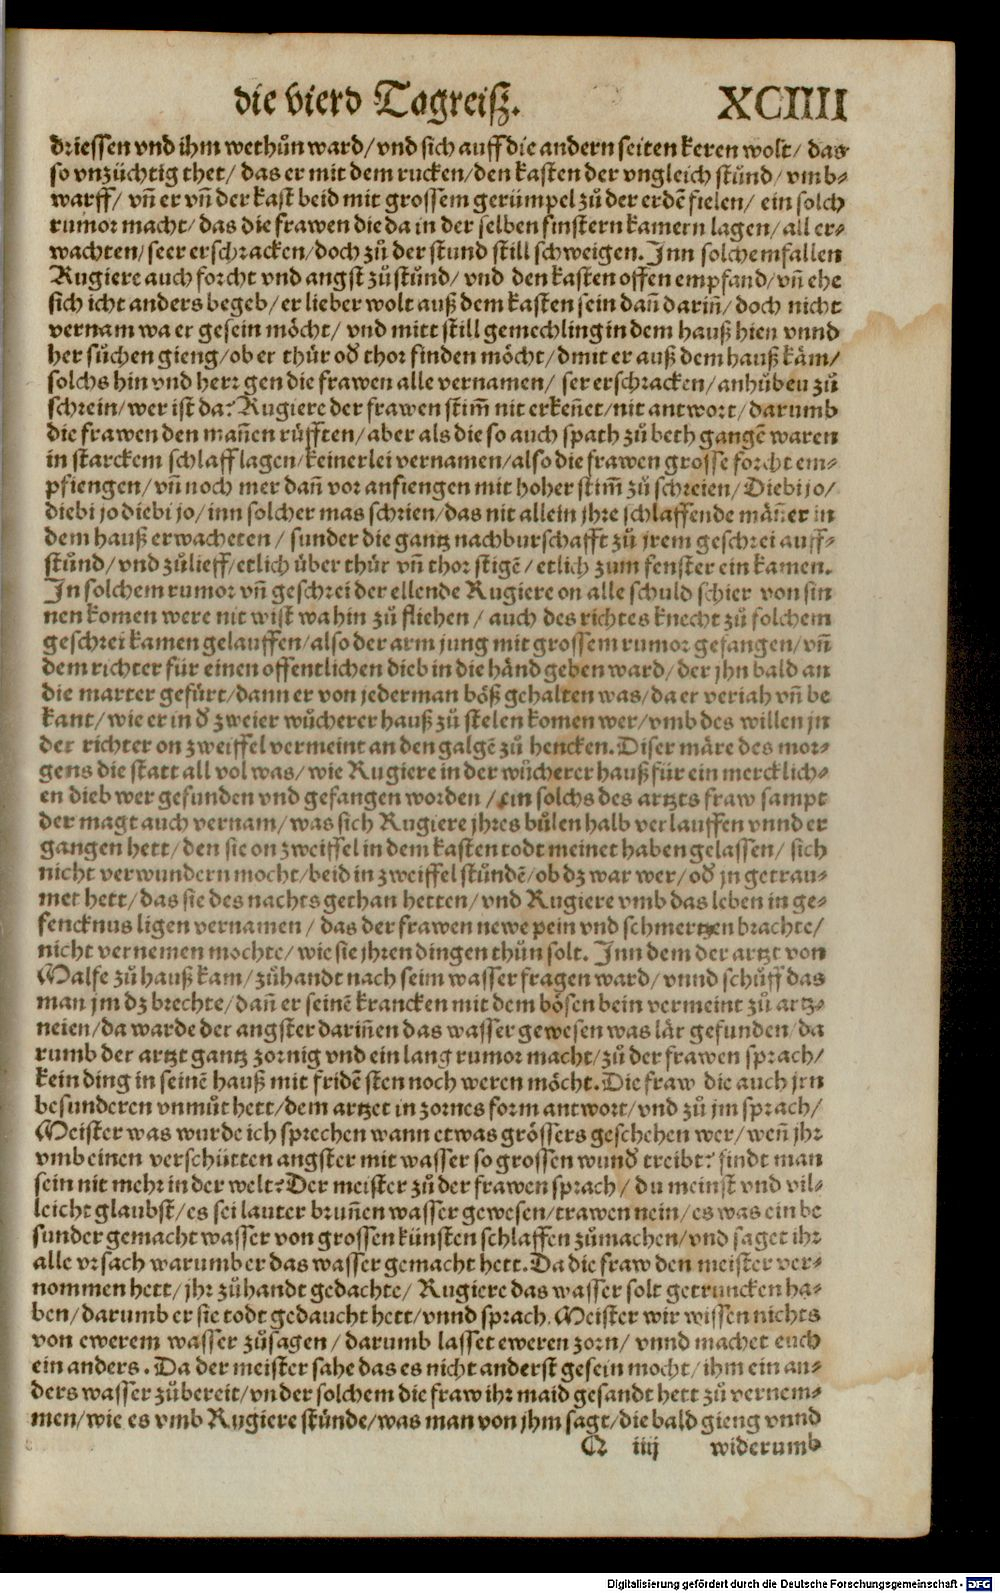 die vierd Tagreiß. XCIIII
driessen vnd ihm wethůn ward/ vnd sich auff die andern seiten keren wolt/ das
so vnzüchtig thet/ das er mit dem rucken/ den kasten der vngleich stůnd/ vmb⸗
warff/ vñ er vñ der kast beid mit grossem gerümpel zů der erdẽ fielen/ ein solch
rumor macht/ das die frawen die da in der selben finstern kamern lagen/ all er⸗
wachten/ seer erschracken/ doch zů der stund still schweigen. Inn solchem fallen
Rugiere auch forcht vnd angst zůstůnd/ vnd den kasten offen empfand/ vñ ehe
sich icht anders begeb/ er lieber wolt auß dem kasten sein dañ dariñ/ doch nicht
vernam wa er gesein möcht/ vnd mitt still gemechling in dem hauß hien vnnd
her sůchen gieng/ ob er thür oď thor finden möcht/ dmit er auß dem hauß käm/
solchs hin vnd herr gen die frawen alle vernamen/ ser erschracken/ anhůben zů
schrein/ wer ist da? Rugiere der frawen stim̃ nit erkeñet/ nit antwort/ darumb
die frawen den mañen růfften/ aber als die so auch spath zů beth gangẽ waren
in starckem schlaff lagen/ keinerlei vernamen/ also die frawen grosse forcht em⸗
pfiengen/ vñ noch mer dañ vor anfiengen mit hoher stim̃ zů schreien/ Diebi jo/
diebi jo diebi jo/ inn solcher mas schrien/ das nit allein jhre schlaffende mäñer in
dem hauß erwacheten/ sunder die gantz nachburschafft zů jrem geschrei auff⸗
stůnd/ vnd zůlieff/ etlich über thür vñ thor stigẽ/ etlich zum fenster ein kamen.
In solchem rumor vñ geschrei der ellende Rugiere on alle schuld schier von sin
nen komen were nit wist wa hin zů fliehen/ auch des richtes knecht zů solchem
geschrei kamen gelauffen/ also der arm jung mit grossem rumor gefangen/ vñ
dem richter für einen offentlichen dieb in die händ geben ward/ der jhn bald an
die marter gefürt/ dann er von jederman böß gehalten was/ da er veriah vñ be
kant/ wie er in ď zweier wůcherer hauß zů stelen komen wer/ vmb des willen jn
der richter on zweiffel vermeint an den galgẽ zů hencken. Diser märe des mor⸗
gens die statt all vol was/ wie Rugiere in der wůcherer hauß für ein mercklich⸗
en dieb wer gefunden vnd gefangen worden/ ein solchs des artzts fraw sampt
der magt auch vernam/ was sich Rugiere jhres bůlen halb verlauffen vnnd er
gangen hett/ den sie on zweiffel in dem kasten todt meinet haben gelassen/ sich
nicht verwundern mocht/ beid in zweiffel stůndẽ/ ob dz war wer/ oď jn getrau⸗
met hett/ das sie des nachts gethan hetten/ vnd Rugiere vmb das leben in ge⸗
fencknus ligen vernamen/ das der frawen newe pein vnd schmertzen brachte/
nicht vernemen mochte/ wie sie jhren dingen thůn solt. Inn dem der artzt von
Malfe zů hauß kam/ zůhandt nach seim wasser fragen ward/ vnnd schůff das
man jm dz brechte/ dañ er seinẽ krancken mit dem bösen bein vermeint zů artz⸗
neien/ da warde der angster dariñen das wasser gewesen was lär gefunden/ da
rumb der artzt gantz zornig vnd ein lang rumor macht/ zů der frawen sprach/
kein ding in seinẽ hauß mit fridẽ sten noch weren möcht. Die fraw die auch jrn
besunderen vnmůt hett/ dem artzet in zornes form antwort/ vnd zů jm sprach/
Meister was wurde ich sprechen wann etwas grössers geschehen wer/ weñ jhr
vmb einen verschütten angster mit wasser so grossen wunď treibt? findt man
sein nit mehr in der welt? Der meister zů der frawen sprach/ du meinst vnd vil⸗
leicht glaubst/ es sei lauter bruñen wasser gewesen/ trawen nein/ es was ein be
sunder gemacht wasser von grossen künsten schlaffen zůmachen/ vnd saget ihr
alle vrsach warumb er das wasser gemacht hett. Da die fraw den meister ver⸗
nommen hett/ jhr zůhandt gedachte/ Rugiere das wasser solt getruncken ha⸗
ben/ darumb er sie todt gedaucht hett/ vnnd sprach. Meister wir wissen nichts
von ewerem wasser zůsagen/ darumb lasset eweren zorn/ vnnd machet euch
ein anders. Da der meister sahe das es nicht anderst gesein mocht/ ihm ein an⸗
ders wasser zůbereit/ vnder solchem die fraw ihr maid gesandt hett zů vernem⸗
men/ wie es vmb Rugiere stünde/ was man von jhm sagt/ die bald gieng vnnd
Q iiij widerumb
Digitalisierung gefördert durch die Deutsche Forschungsgemeinschaft - DFG